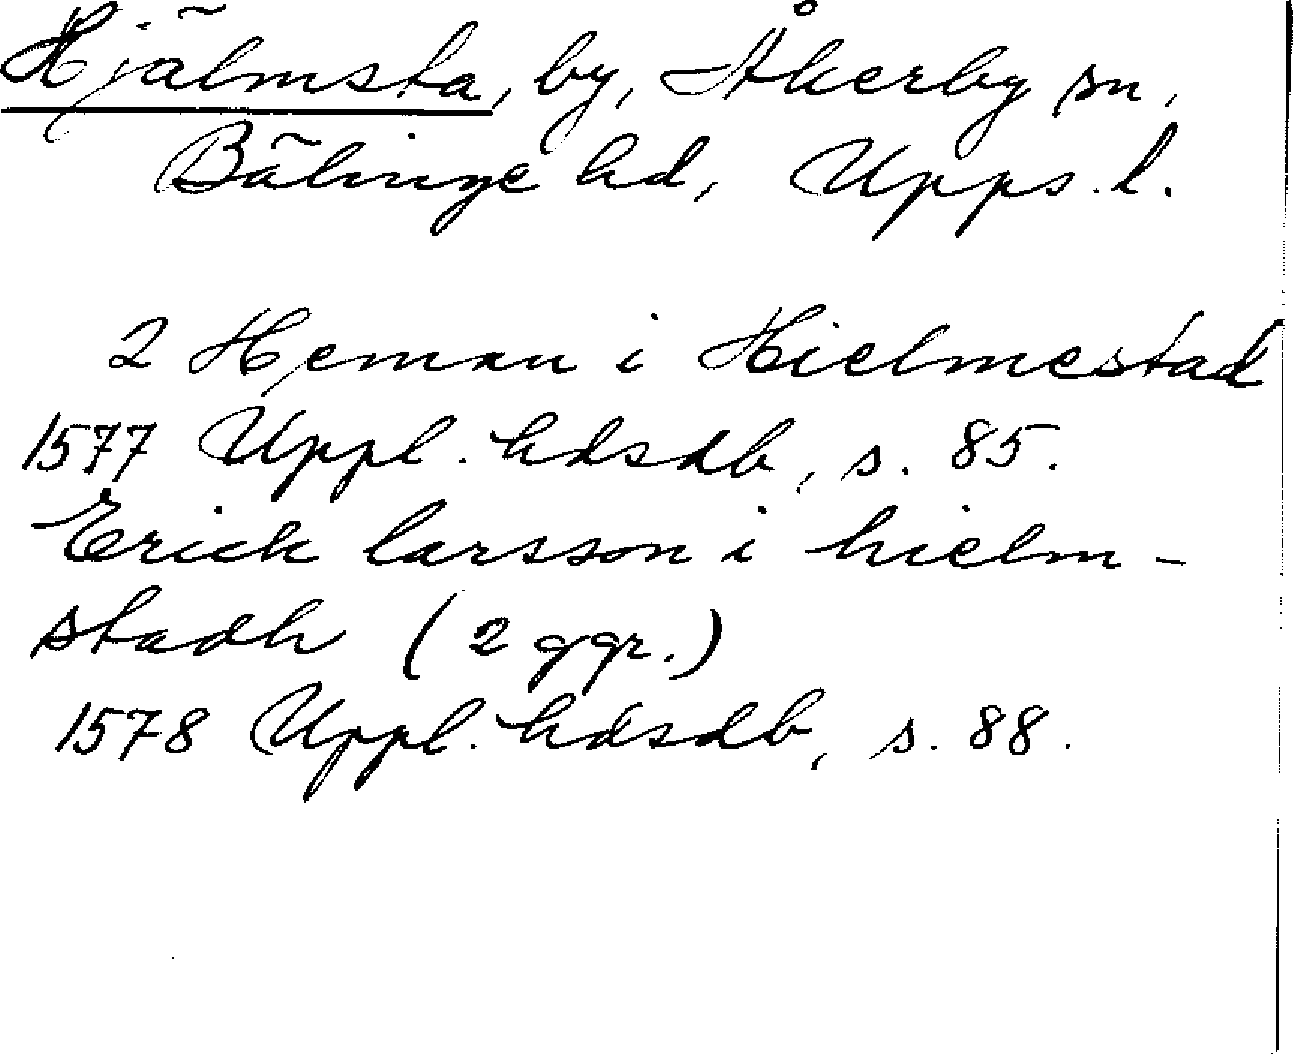 Hjälmsta, by, Åkerby sn,
Bälinge hd, Upps. l.
2 Hemxn i Hielmestad
1577 Uppl. hdsdb, s. 85.
Erick larsson i hielm-
stadh (2 ggr.)
1578 Uppl. hdsdb, s. 88.